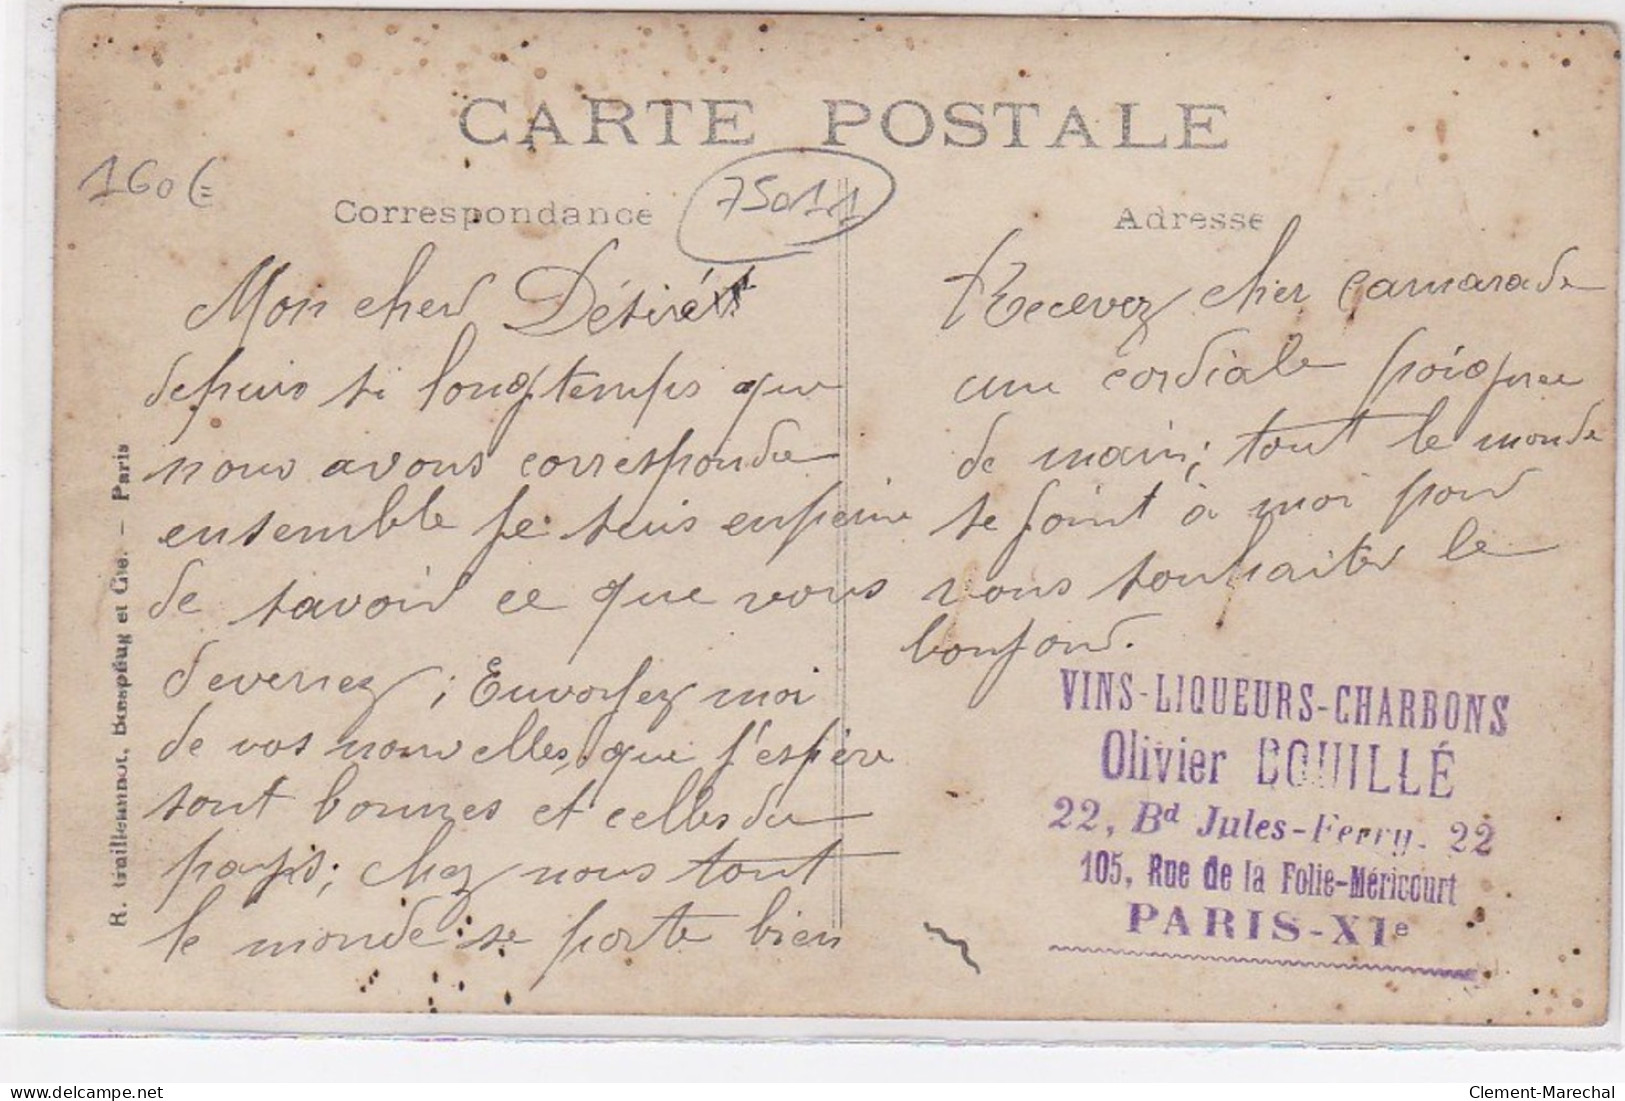 CARTE POSTALE
160€
75011
Correspondance
Adresse
Mon cher Désiré
depuis si longtemps que
nous avons correspondu
ensemble je suis enpeine
de savoir ce que vous
devenez; Envoyez moi
de vos nouvelles, que j'espère
sont bonnes et celles du
pays; chez nous tout
le monde se porte bien
Recevez cher camarade
une cordiale poignee
de main; tout le monde
se joint à moi pour
vous souhaiter le
bonjour.
VINS-LIQUEURS-CHARBONS
Olivier BOUILLÉ
22, Bd Jules-Ferry. 22
105, Rue de la Folie-Méricourt
PARIS-XIe
R. Guilleminot, Bœspflug et Cie. — Paris
delcampe.net
Clement-Marechal